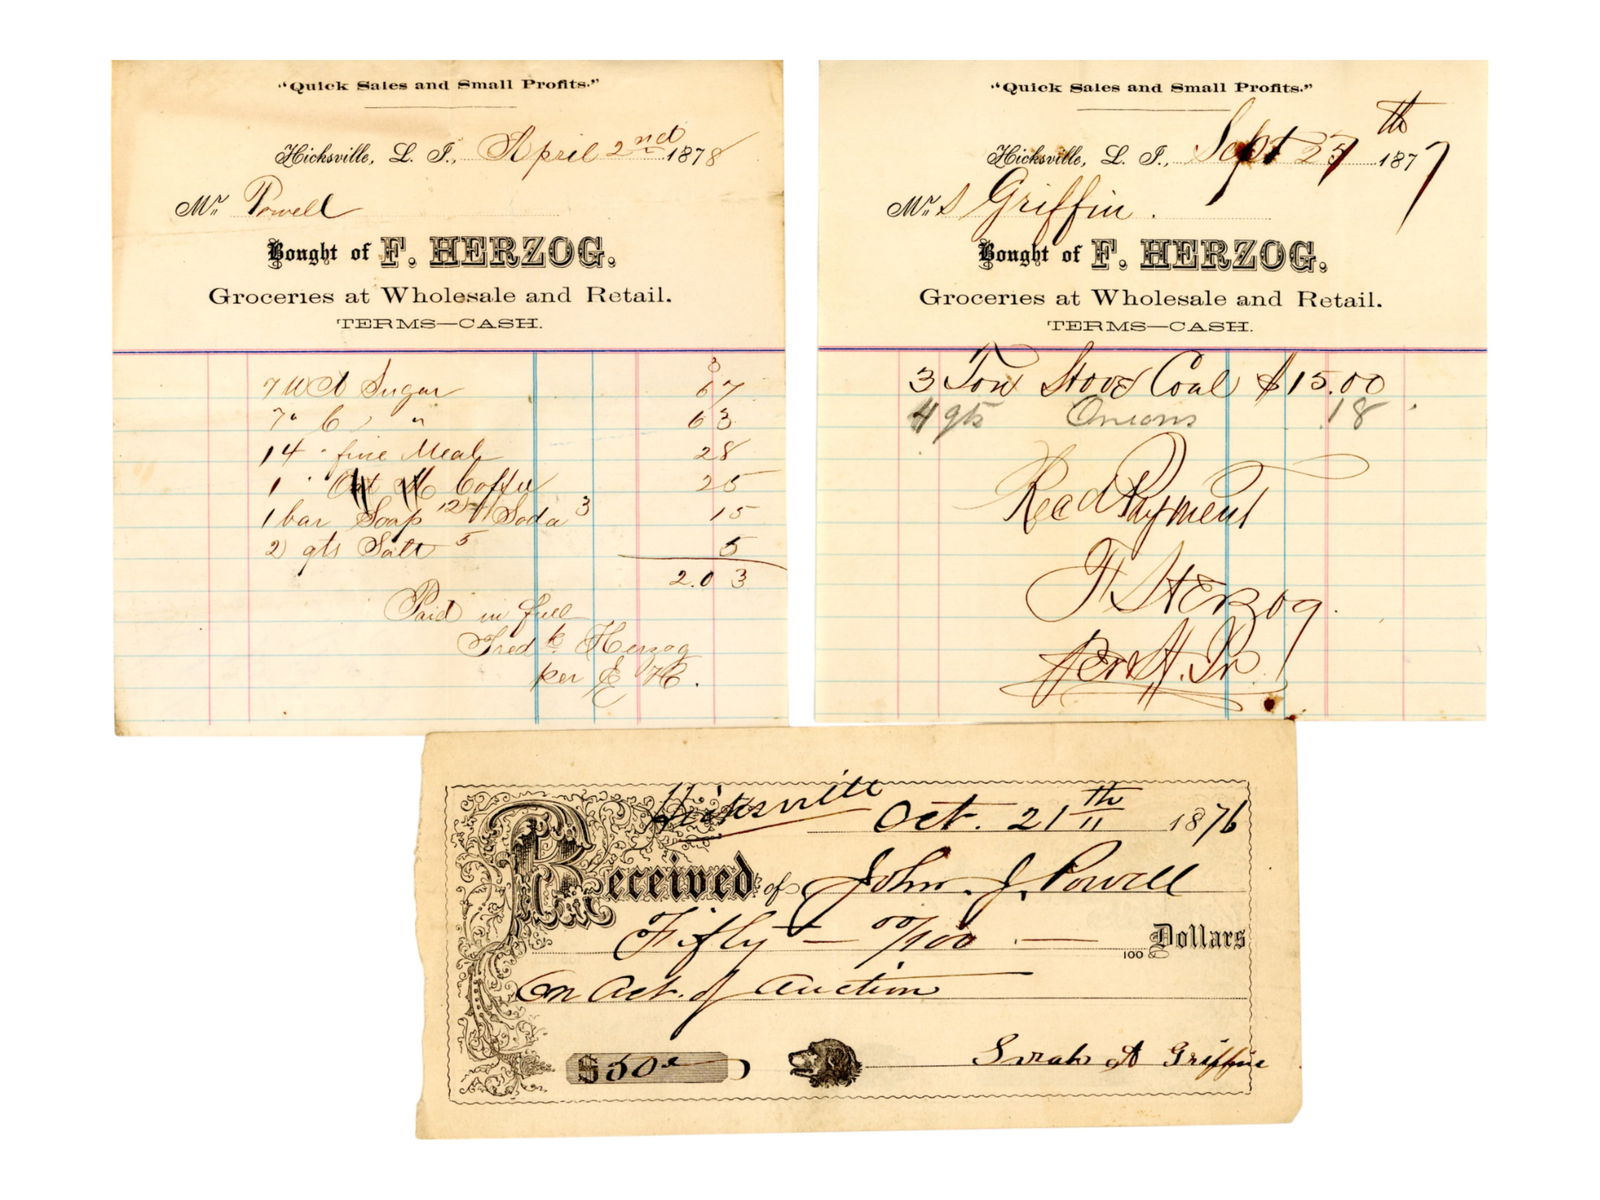 "Quick Sales and Small Profits."
Hicksville, L. I., April 2nd 1878
Mr. Powell
Bought of F. HERZOG.
Groceries at Wholesale and Retail.
TERMS—CASH.
7 Sugar 67
7 " C " 63
14 " fine Meal 28
1 " Coffee 25
1 bar Soap 12 Soda 3 15
2 qts Salt 5 5
2.03
Paid in full
Fredk. Herzog
per E H.
"Quick Sales and Small Profits."
Hicksville, L. I., Sept 27th 1877
Mr.s Griffin.
Bought of F. HERZOG.
Groceries at Wholesale and Retail.
TERMS—CASH.
3 Ton Stove Coal $15.00
4 qts Onions .18
Recd Payment
F Herzog.
per
Hicksville Oct. 21th 1876
Received of John. J. Powell
Fifty — 00/100 — 100 Dollars
On Act. of Auction
$50
Sarah A Griffin